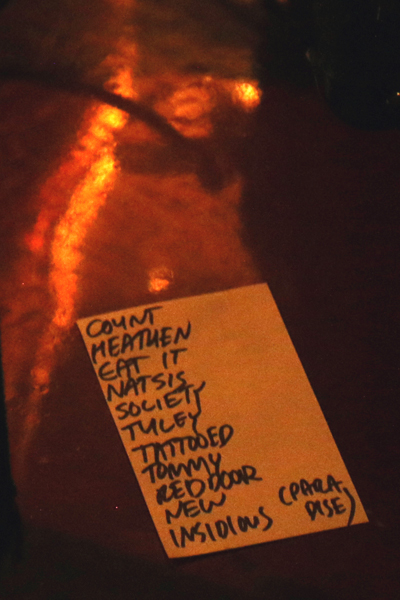 COUNT
HEATHEN
EAT IT
NATSIS
SOCIETY
TULEY
TATTOOED
TOMMY
RED DOOR
NEW
INSIDIOUS (PARA
DISE)